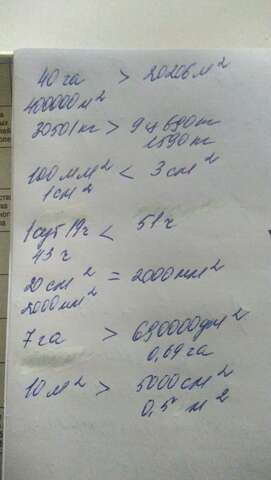 40 га > 20206 м²
400000 м²
30501 кг > 9 ц 690 кг
1590 кг
100 мм² < 3 см²
1 см²
1 сут 19 ч < 51 ч
43 ч
20 см² = 2000 мм²
2000 мм²
7 га > 690000 дм²
0,69 га
10 м² > 5000 см²
0,5 м²